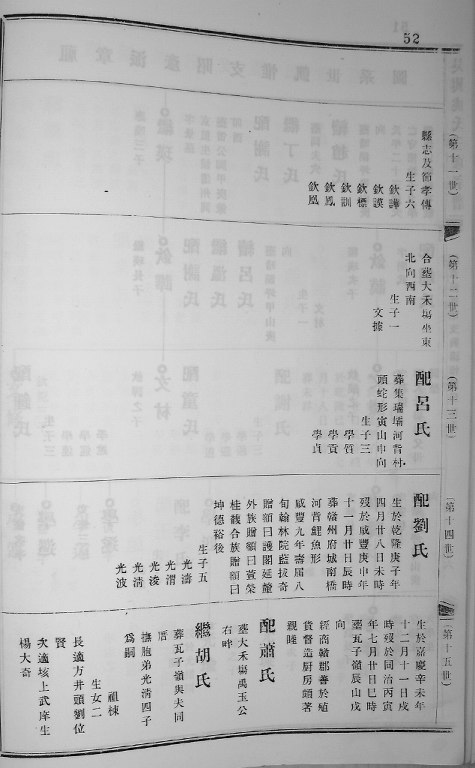 52
(第十一世)
縣志及節孝傳
生子六
欽譁
欽謨
欽標
欽訓
欽鳳
欽凰
(第十二世)
合塟大禾塲坐東
北向西南
生子一
文據
(第十三世)
配呂氏
葬集瑞壩河背村
頭蛇形寅山申向
生子三
學質
學貢
學貞
(第十四世)
配劉氏
生於乾隆庚子年
四月廿八日未時
歿於咸豐庚申年
十一月廿日辰時
葬贛州府城南橋
河背鯉魚形
咸豐九年壽届八
旬翰林院藍拔奇
贈額曰護閣延齡
外族贈額曰萱榮
桂馥合族贈額曰
坤德裕後
生子五
光濤
光渭
光浚
光清
光波
(第十五世)
生於嘉慶辛未年
十二月十一日戌
時歿於同治丙寅
年七月廿日巳時
塟瓦子嶺辰山戌
向
經商贛郡善於殖
貨督造厨房頗著
親睦
配蕭氏
塟大禾塲禹玉公
右畔
繼胡氏
葬瓦子嶺與夫同
厝
撫胞弟光清四子
爲嗣
禎棟
生女二
長適万井頭劉位
賢
次適墩上武庠生
楊大奇